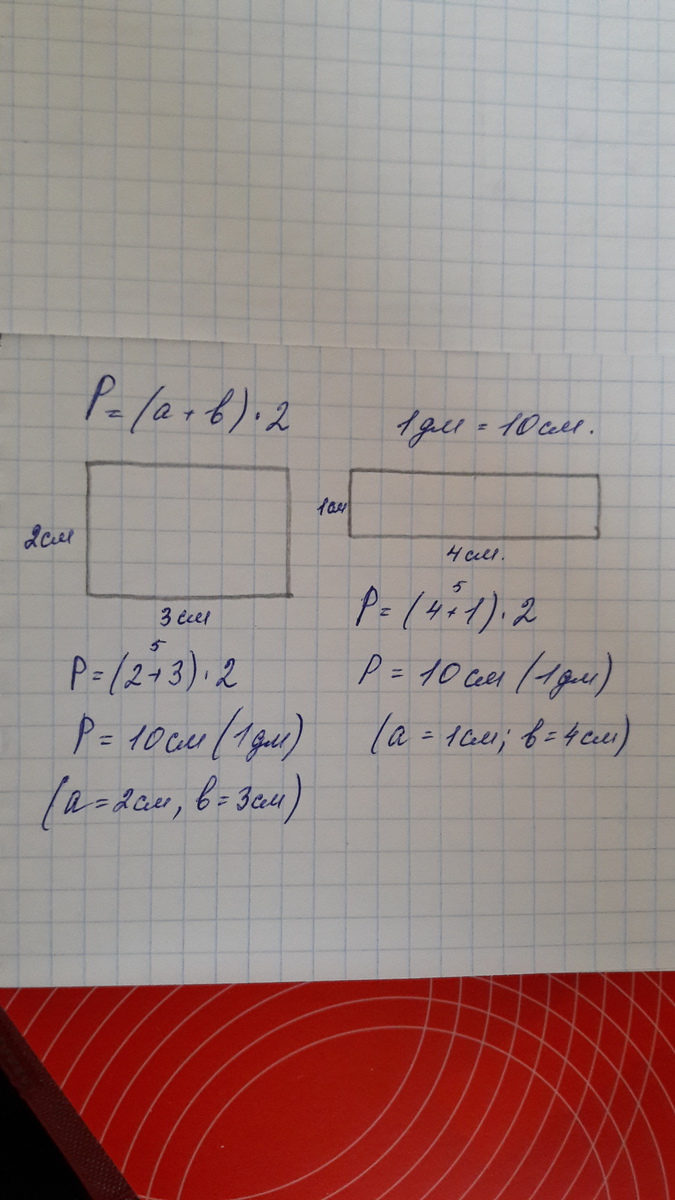 P = (a + b) · 2
1дм = 10см.
2см
3см
5
P = (2 + 3) · 2
P = 10см (1дм)
(a = 2см, b = 3см)
1см
4см.
5
P = (4 + 1) · 2
P = 10см (1дм)
(a = 1см; b = 4см)